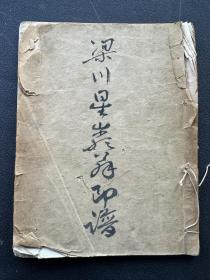 梁川星巖翁印譜